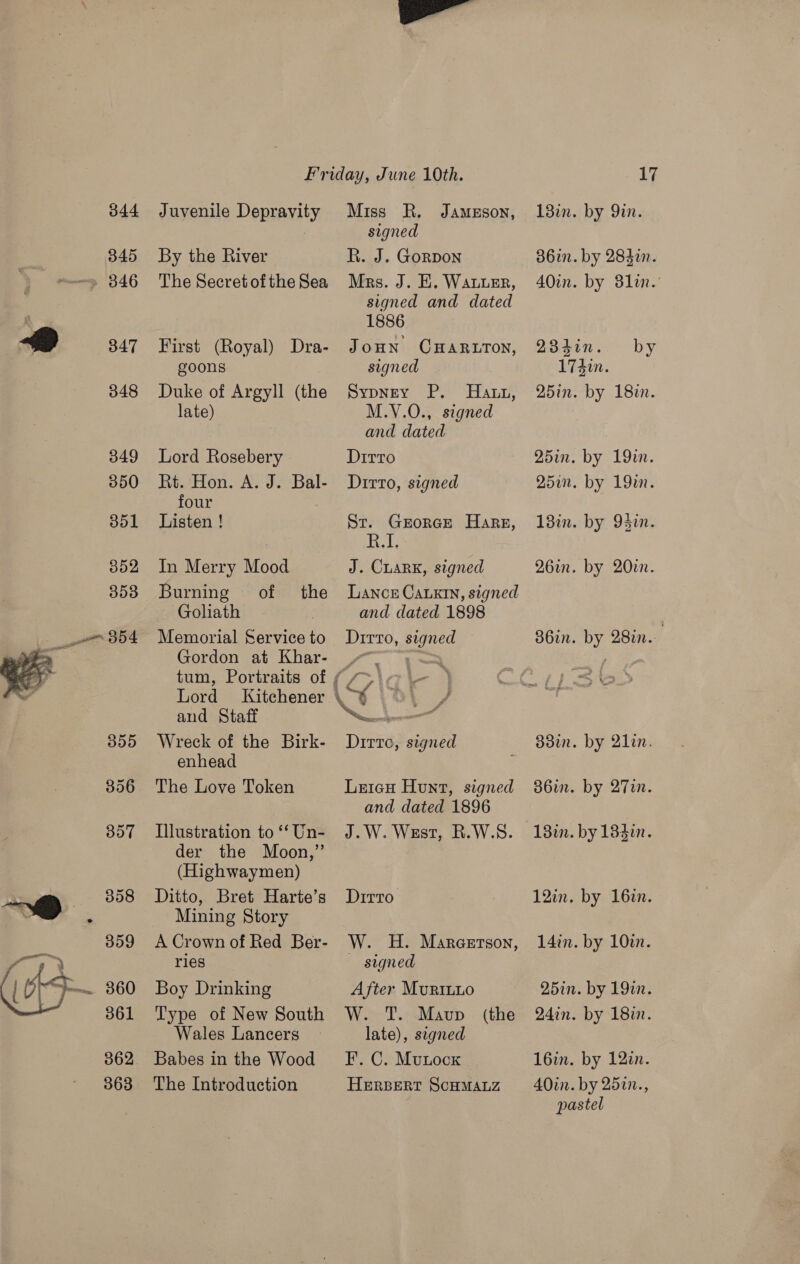 Friday, June 10th. 17
344 Juvenile Depravity Miss R. Jameson, 13in. by 9in.
signed
345 By the River R. J. Gordon 36in. by 28½in.
346 The Secret of the Sea Mrs. J. E. Waller, 40in. by 31in.
signed and dated
1886
347 First (Royal) Dra- John Charlton, 23½in. by
goons signed 17½in.
348 Duke of Argyll (the Sydney P. Hall, 25in. by 18in.
late) M.V.O., signed
and dated
349 Lord Rosebery Ditto 25in. by 19in.
350 Rt. Hon. A. J. Bal- Ditto, signed 25in. by 19in.
four
351 Listen ! St. George Hare, 13in. by 9½in.
R.I.
352 In Merry Mood J. Clark, signed 26in. by 20in.
353 Burning of the Lance Calkin, signed
Goliath and dated 1898
354 Memorial Service to Ditto, signed 36in. by 28in.
Gordon at Khar-
tum, Portraits of
Lord Kitchener
and Staff
355 Wreck of the Birk- Ditto, signed 33in. by 21in.
enhead
356 The Love Token Leigh Hunt, signed 36in. by 27in.
and dated 1896
357 Illustration to “Un- J. W. West, R.W.S. 13in. by 13½in.
der the Moon,”
(Highwaymen)
358 Ditto, Bret Harte’s Ditto 12in. by 16in.
Mining Story
359 A Crown of Red Ber- W. H. Margetson, 14in. by 10in.
ries signed
360 Boy Drinking After Murillo 25in. by 19in.
361 Type of New South W. T. Maud (the 24in. by 18in.
Wales Lancers late), signed
362 Babes in the Wood F. C. Mulock 16in. by 12in.
363 The Introduction Herbert Schmalz 40in. by 25in.,
pastel